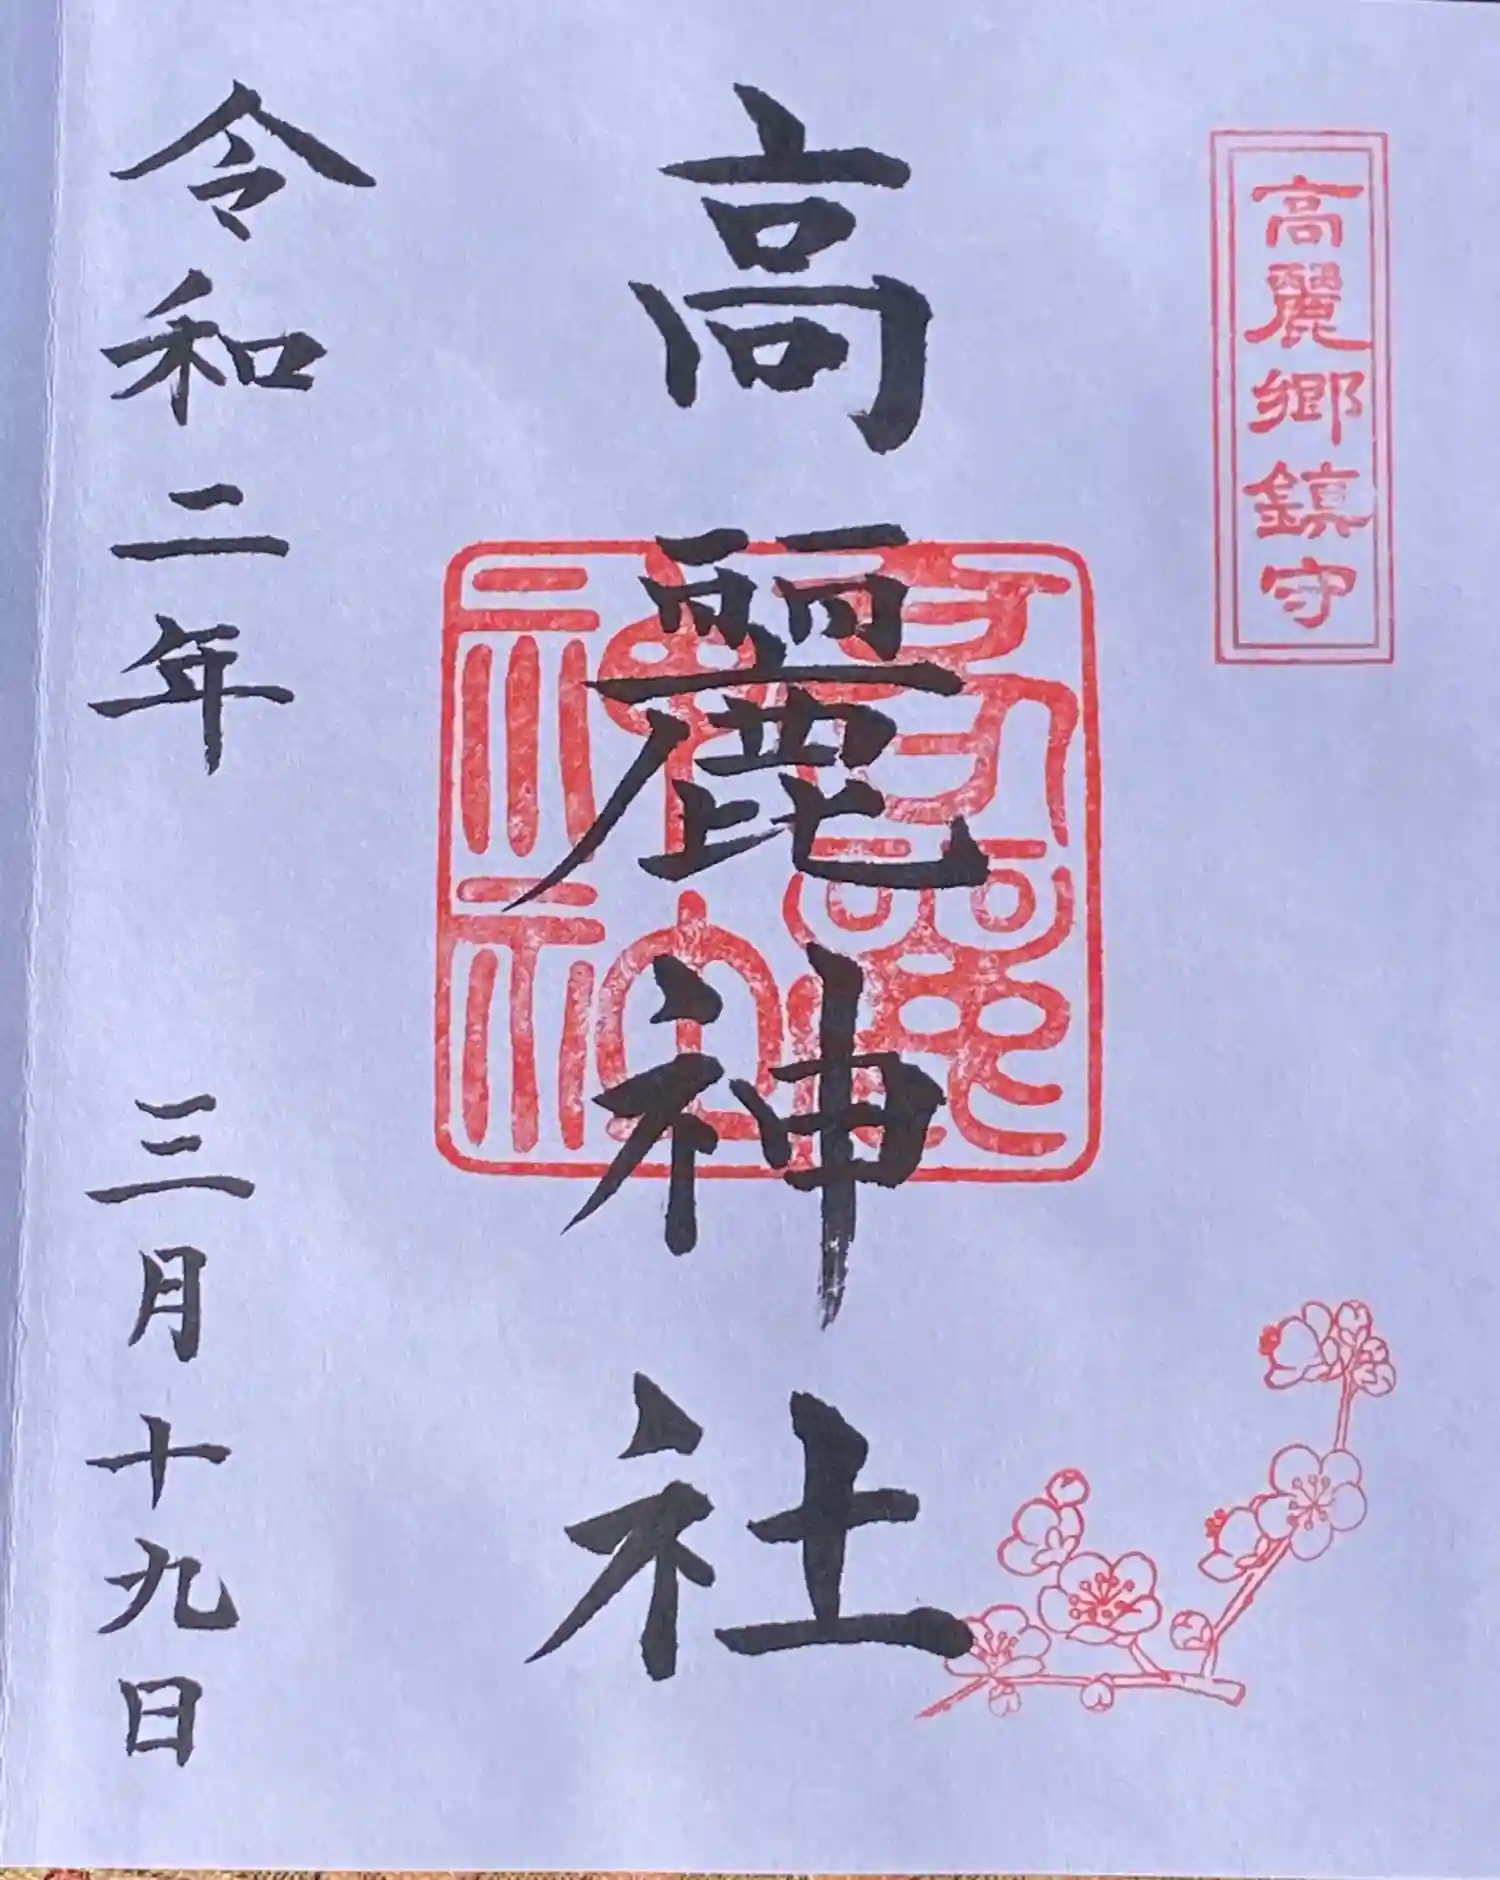 高麗郷鎮守
高麗神社
高麗神社
令和二年 三月十九日